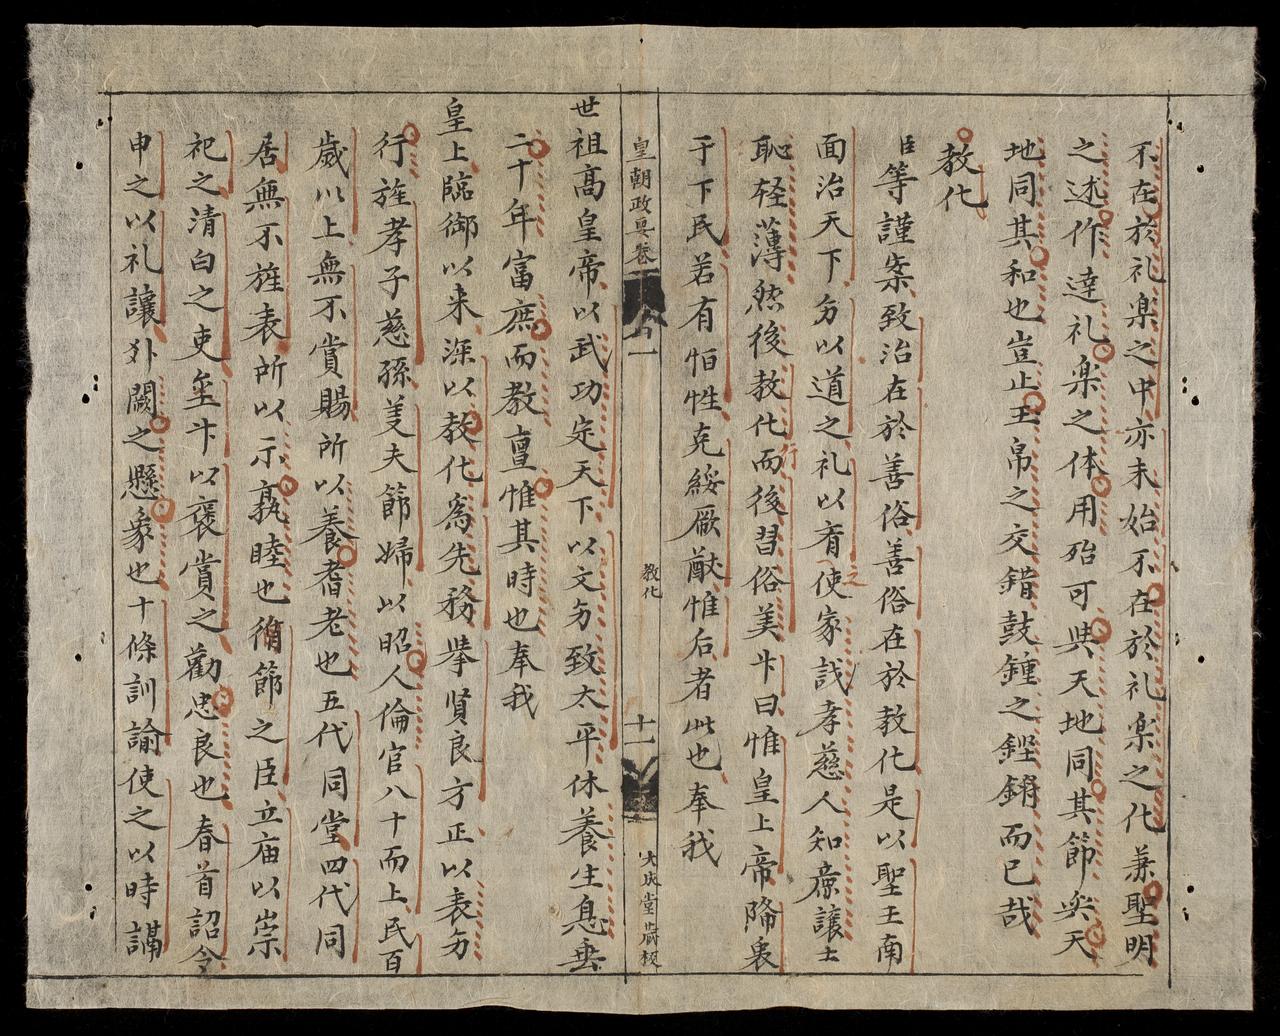 不在於礼楽之中亦未始不在於礼楽之化兼聖明
之述作達礼楽之体用殆可与天地同其節与天
地同其和也豈止玉帛之交錯鼓鍾之鏗鏘而已哉
教化
臣等謹案致治在於善俗善俗在於教化是以聖王南
面治天下務以道之礼以有使之家誡孝慈人知廉讓士
恥轻薄然後教化行而後習俗美書曰惟皇上帝降衷
于下民若有恒性克綏厥猷惟后者此也奉我
皇朝政要卷 十一 教化 大庆堂藏板
世祖高皇帝以武功定天下以文为致太平休養生息垂
二十年富庶而教亶惟其時也奉我
皇上臨御以来深以教化爲先務挙賢良方正以表为
行旌孝子慈孫义夫節婦以昭人倫官八十而上民百
歲以上無不賞賜所以養耆老也五代同堂四代同
居無不旌表所以示孰睦也脩節之臣立庙以崇
祀之清白之吏坐卞以褒賞之勸忠良也春首詔令
申之以礼讓外闕之懸象也十條訓諭使之以時講